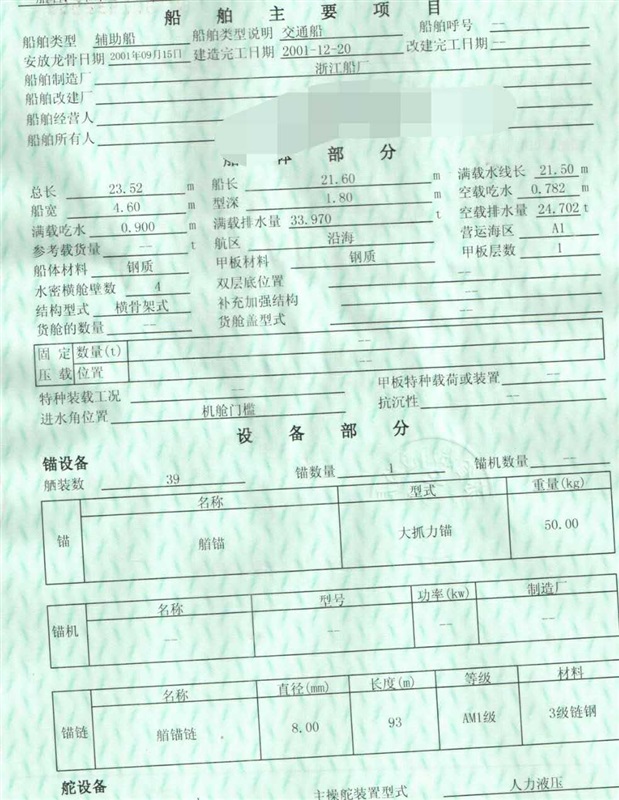 船舶主要项目
船舶类型 辅助船 船舶类型说明 交通船 船舶呼号 --
安放龙骨日期 2001年09月15日 建造完工日期 2001-12-20 改建完工日期 --
船舶制造厂 浙江船厂
船舶改建厂
船舶经营人
船舶所有人
船体部分
总长 23.52 m 船长 21.60 m 满载水线长 21.50 m
船宽 4.60 m 型深 1.80 m 空载吃水 0.782 m
满载吃水 0.900 m 满载排水量 33.970 t 空载排水量 24.702 t
参考载货量 -- t 航区 沿海 营运海区 A1
船体材料 钢质 甲板材料 钢质 甲板层数 1
水密横舱壁数 4 双层底位置 --
结构型式 横骨架式 补充加强结构 --
货舱的数量 -- 货舱盖型式 --
固定压载 数量(t) --
位置 --
特种装载工况 -- 甲板特种载荷或装置 --
进水角位置 机舱门槛 抗沉性 --
设备部分
锚设备
舾装数 39 锚数量 1 锚机数量 --
名称 型式 重量(kg)
锚 艏锚 大抓力锚 50.00
名称 型号 功率(kw) 制造厂
锚机 -- -- -- --
名称 直径(mm) 长度(m) 等级 材料
锚链 艏锚链 8.00 93 AM1级 3级链钢
舵设备
主操舵装置型式 人力液压